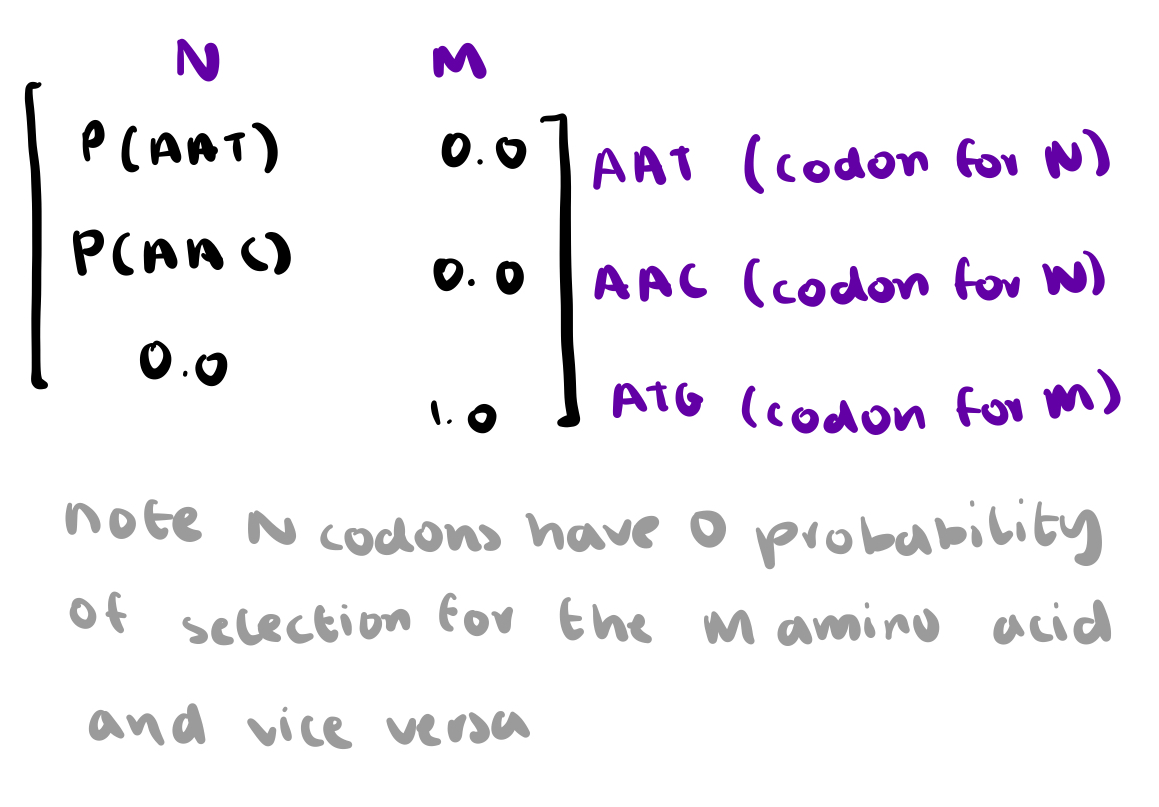 N M
P(AAT) 0.0 AAT (codon for N)
P(AAC) 0.0 AAC (codon for N)
0.0
1.0 ATG (codon for M)
note N codons have 0 probability
of selection for the M amino acid
and vice versa